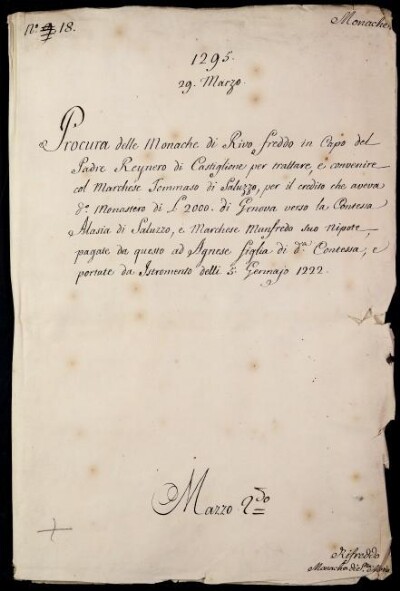 N.º 18.
Monache
1295.
29. Marzo.
Procura delle Monache di Rivo freddo in Capo del
Padre Reynero di Castiglione per trattare, e convenire
col Marchese Tommaso di Saluzzo, per il credito che aveva
d.º Monastero di L. 2000. di Genova verso la Contessa
Alasia di Saluzzo, e Marchese Manfredo suo Nipote,
pagate da questo ad Agnese figlia di d.ª Contessa, e
portate da Istromento delli 5. Gennajo 1222.
Mazzo 2.do
Rifreddo
Monache di S.ta